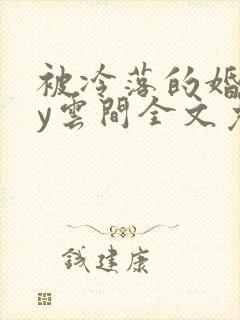 被冷落的婚
y雲間全文
钱建康